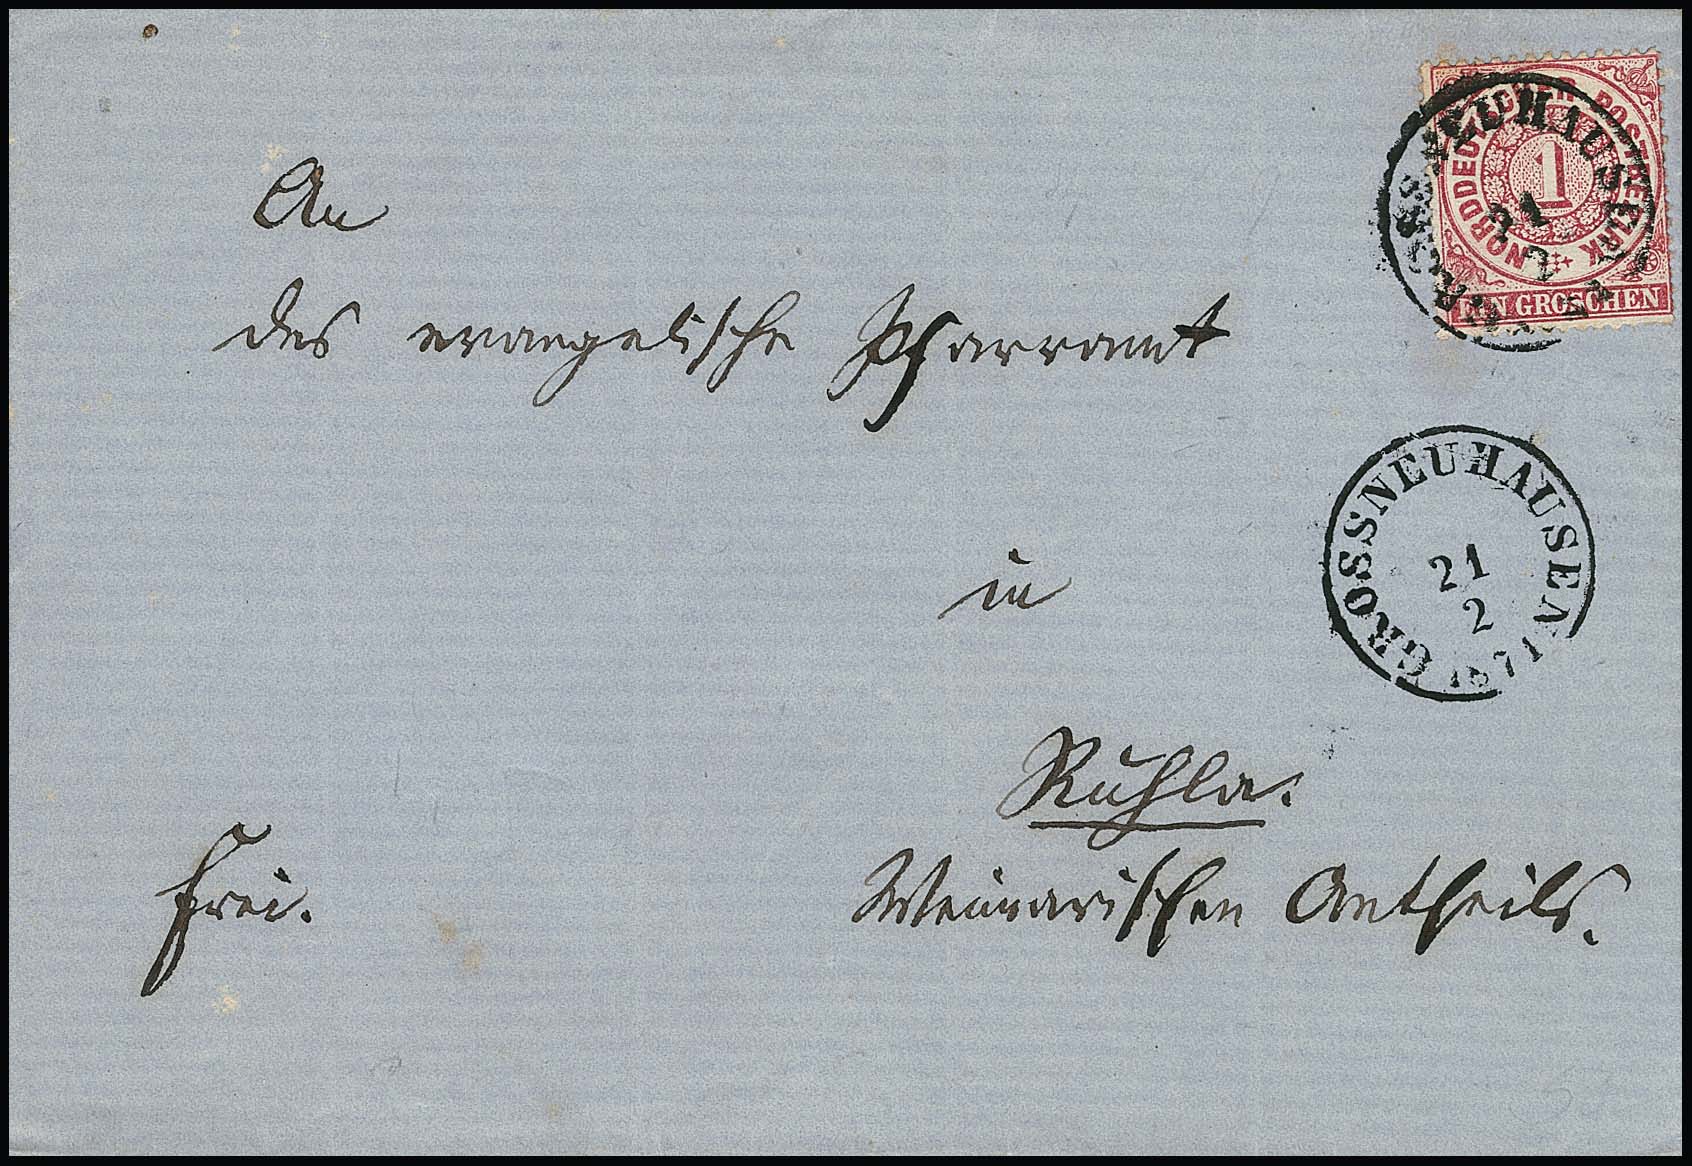 An
das evangelische Pfarramt
in
Ruhla.
Weimarischen Antheils.
frei.
NORDDEUTSCHER POSTBEZIRK
1
EIN GROSCHEN
GROSSNEUHAUSEN
21
2
1871
GROSSNEUHAUSEN
21
2